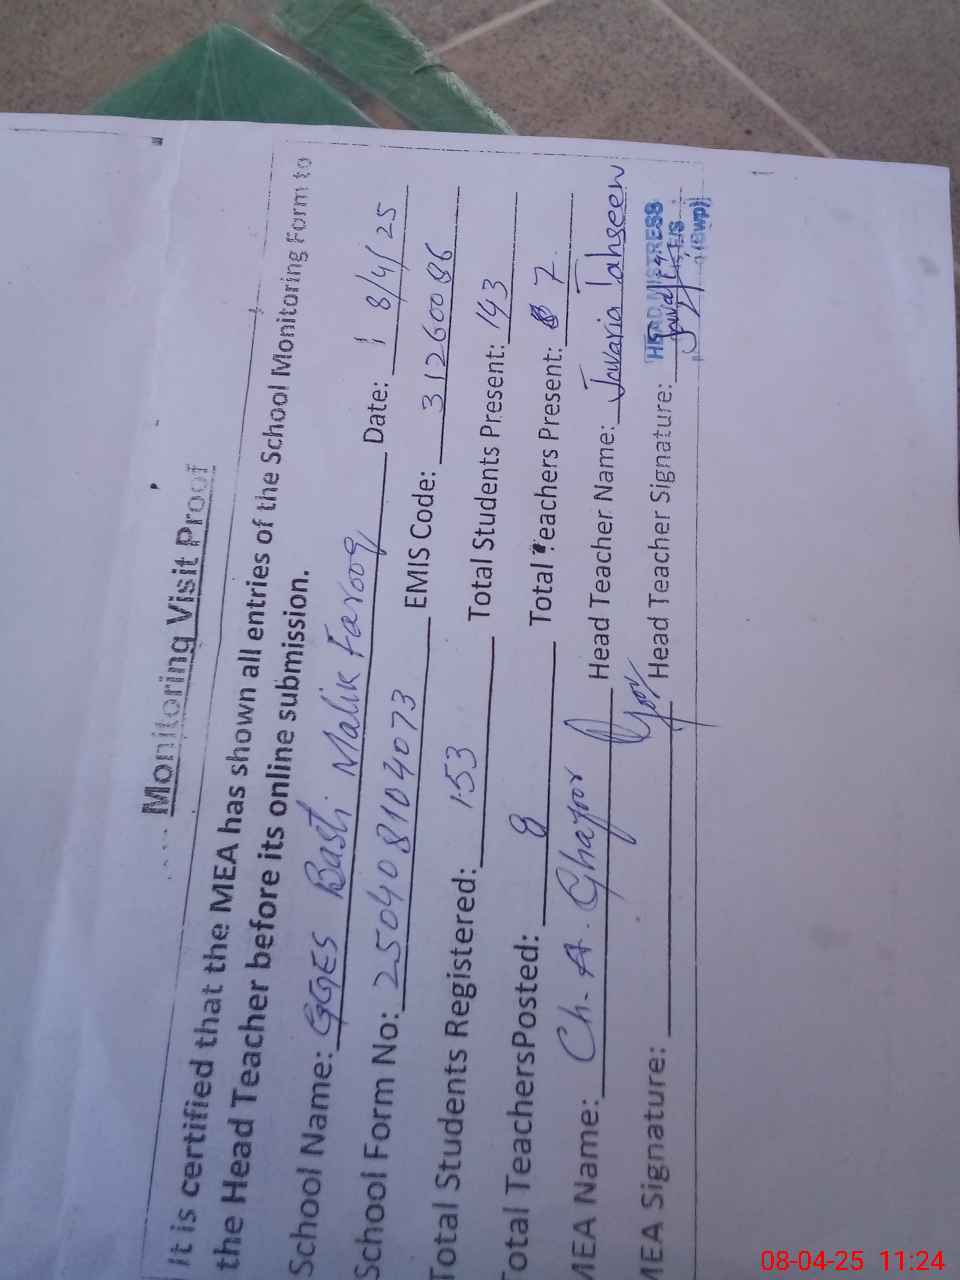 Monitoring Visit Proof
It is certified that the MEA has shown all entries of the School Monitoring Form to
the Head Teacher before its online submission.
School Name: GGES Basti Malik Farooq Date: 8/4/25
School Form No: 250408104073 EMIS Code: 31260086
Total Students Registered: 153 Total Students Present: 143
Total TeachersPosted: 8 Total Teachers Present: 7
MEA Name: Ch. A. Ghafoor Head Teacher Name: Javaria Tahseen
MEA Signature: Head Teacher Signature:
HEAD MISTRESS
(Bwp)
08-04-25 11:24